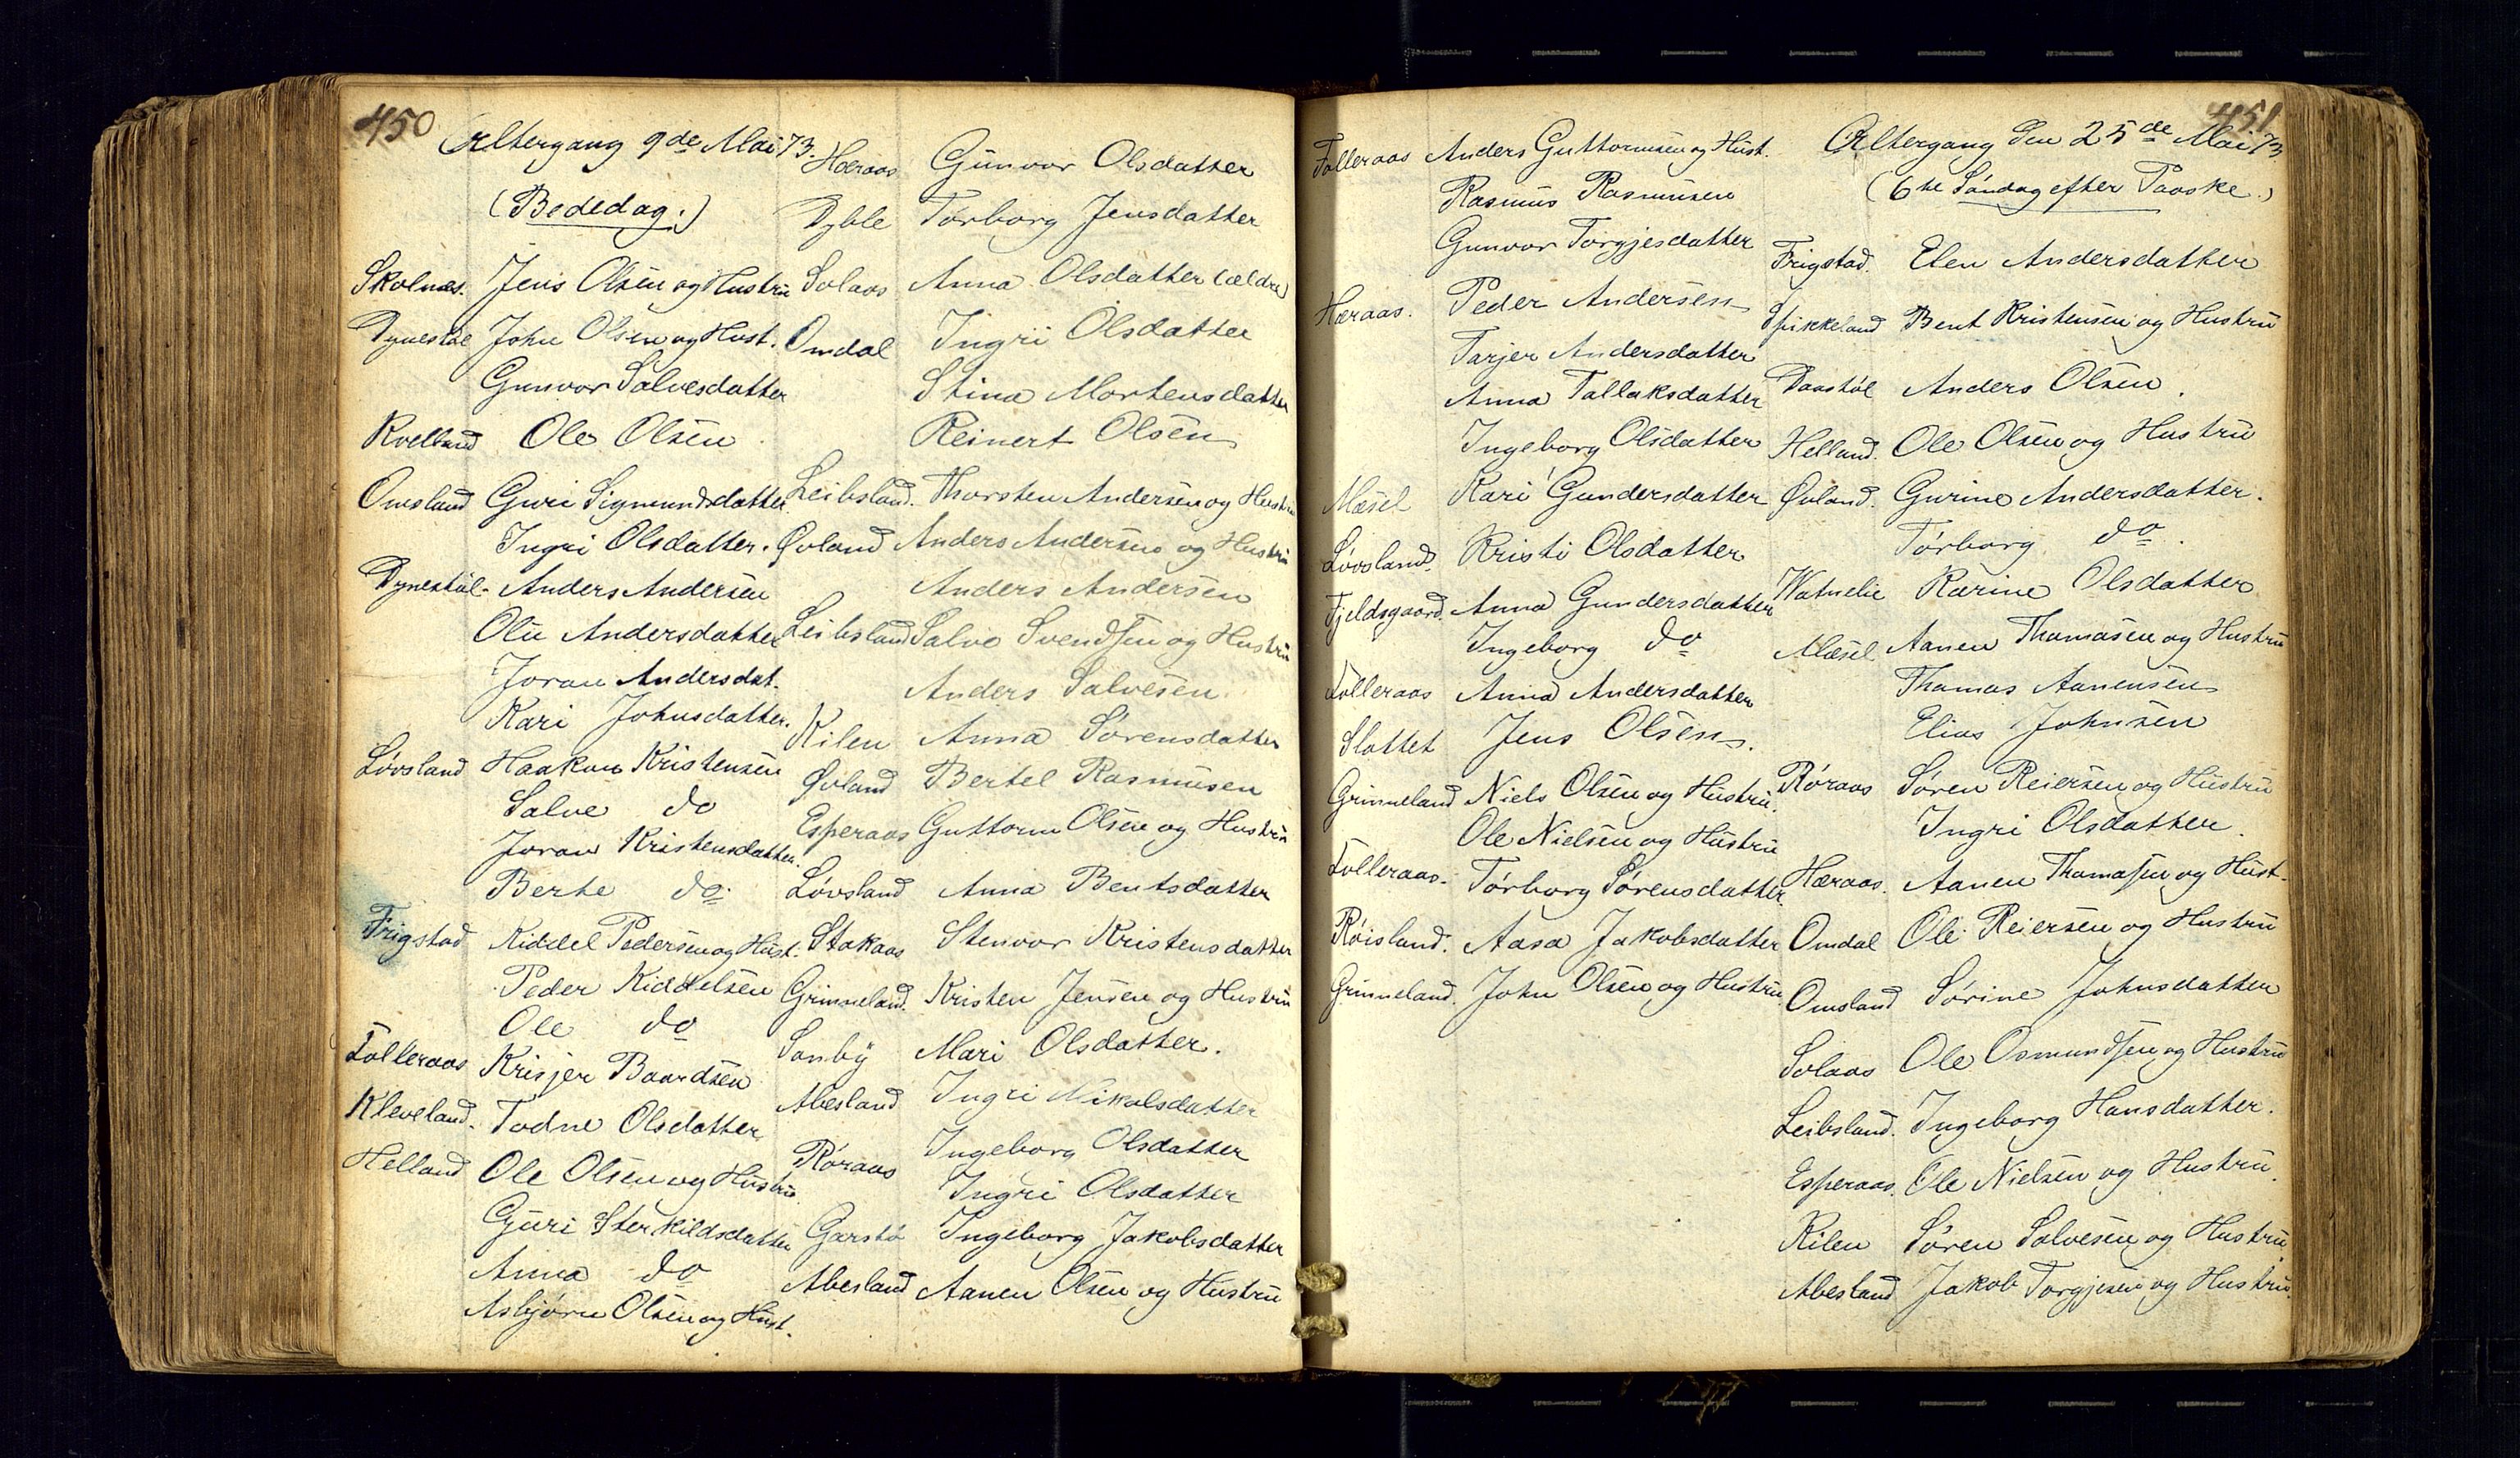 450
Altergang 9de Mai 73.
(Bededag.)
Skolnæs. Jens Olsen og Hustru
Dynestøl John Olsen og Hust.
Gunvor Salvesdatter
Kvelland Ole Olsen
Omsland Guri Sigmundsdatter
Ingri Olsdatter.
Dynestøl. Anders Andersen
Olu Andersdatter
Joran Andersdat.
Kari Johnsdatter.
Løvsland Haakon Kristensen
Salve do
Joran Kristensdatter.
Berte do.
Frigstad Kiddel Pedersen og Hust.
Peder Kiddelsen
Ole do
Tolleraas Krisjer Baardsen
Kleveland. Todne Olsdatter
Helland Ole Olsen og Hustru
Guri Sterkildsdatter
Anna do
Asbjørn Olsen og Hust.
Hæraas Gunvor Olsdatter
Dyble Torborg Jensdatter
Solaas Anna Olsdatter (ældre)
Omdal Ingri Olsdatter
Stina Mortensdatter
Reinert Olsen
Leibsland. Thorsten Andersen og Hustru
Øvland Anders Andersen og Hustru
Anders Andersen
Leibsland Salve Svendsen og Hustru
Anders Salvesen
Kilen Anna Sørensdatter
Øvland Bertel Rasmusen
Esperaas Guttorm Olsen og Hustru
Løvsland Anna Bentsdatter
Stakaas Stenvor Kristensdatter
Grimneland. Kristen Jensen og Hustru
Sanby Mari Olsdatter.
Abesland Ingri Nikolsdatter
Røraas Ingeborg Olsdatter
Ingri Olsdatter
Garstø Ingeborg Jakobsdatter
Abesland Aanen Olsen og Hustru
451
Tolleraas Anders Guttormsen og Hust.
Rasmus Rasmusen
Gunvor Torgjesdatter
Hæraas. Peder Andersen
Tarjer Andersdatter
Anna Tallaksdatter
Ingeborg Olsdatter
Mæsel Kari Gundersdatter
Løvsland. Kristi Olsdatter
Fjeldsgaard. Anna Gundersdatter
Ingeborg do
Tolleraas Anna Andersdatter
Slottet Jens Olsen.
Grimneland Niels Olsen og Hustru.
Ole Nielsen og Hustru
Tolleraas. Torborg Sørensdatter
Røisland. Aasa Jakobsdatter
Grimneland. John Olsen og Hustru
Altergang den 25de Mai 73
(6te Søndag efter Paaske.)
Frigstad. Elen Andersdatter
Spikkeland Bent Kristensen og Hustru
Daastøl Anders Olsen
Helland. Ole Olsen og Hustru
Øvland. Gurine Andersdatter.
Torborg do.
Vatnelie Karine Olsdatter
Mæsel Aanen Thomasen og Hustru
Thomas Aanensen
Elias Johnsen
Røraas Søren Reiersen og Hustru
Ingri Olsdatter.
Hæraas. Aanen Thomassen og Hust.
Omdal Ole Reiersen og Hustru
Omsland Sørine Johnsdatter
Solaas Ole Osmundsen og Hustru
Leibsland. Ingeborg Hansdatter.
Esperaas. Ole Nielsen og Hustru.
Kilen Søren Salvesen og Hustru.
Abesland Jakob Torgjesen og Hustru.